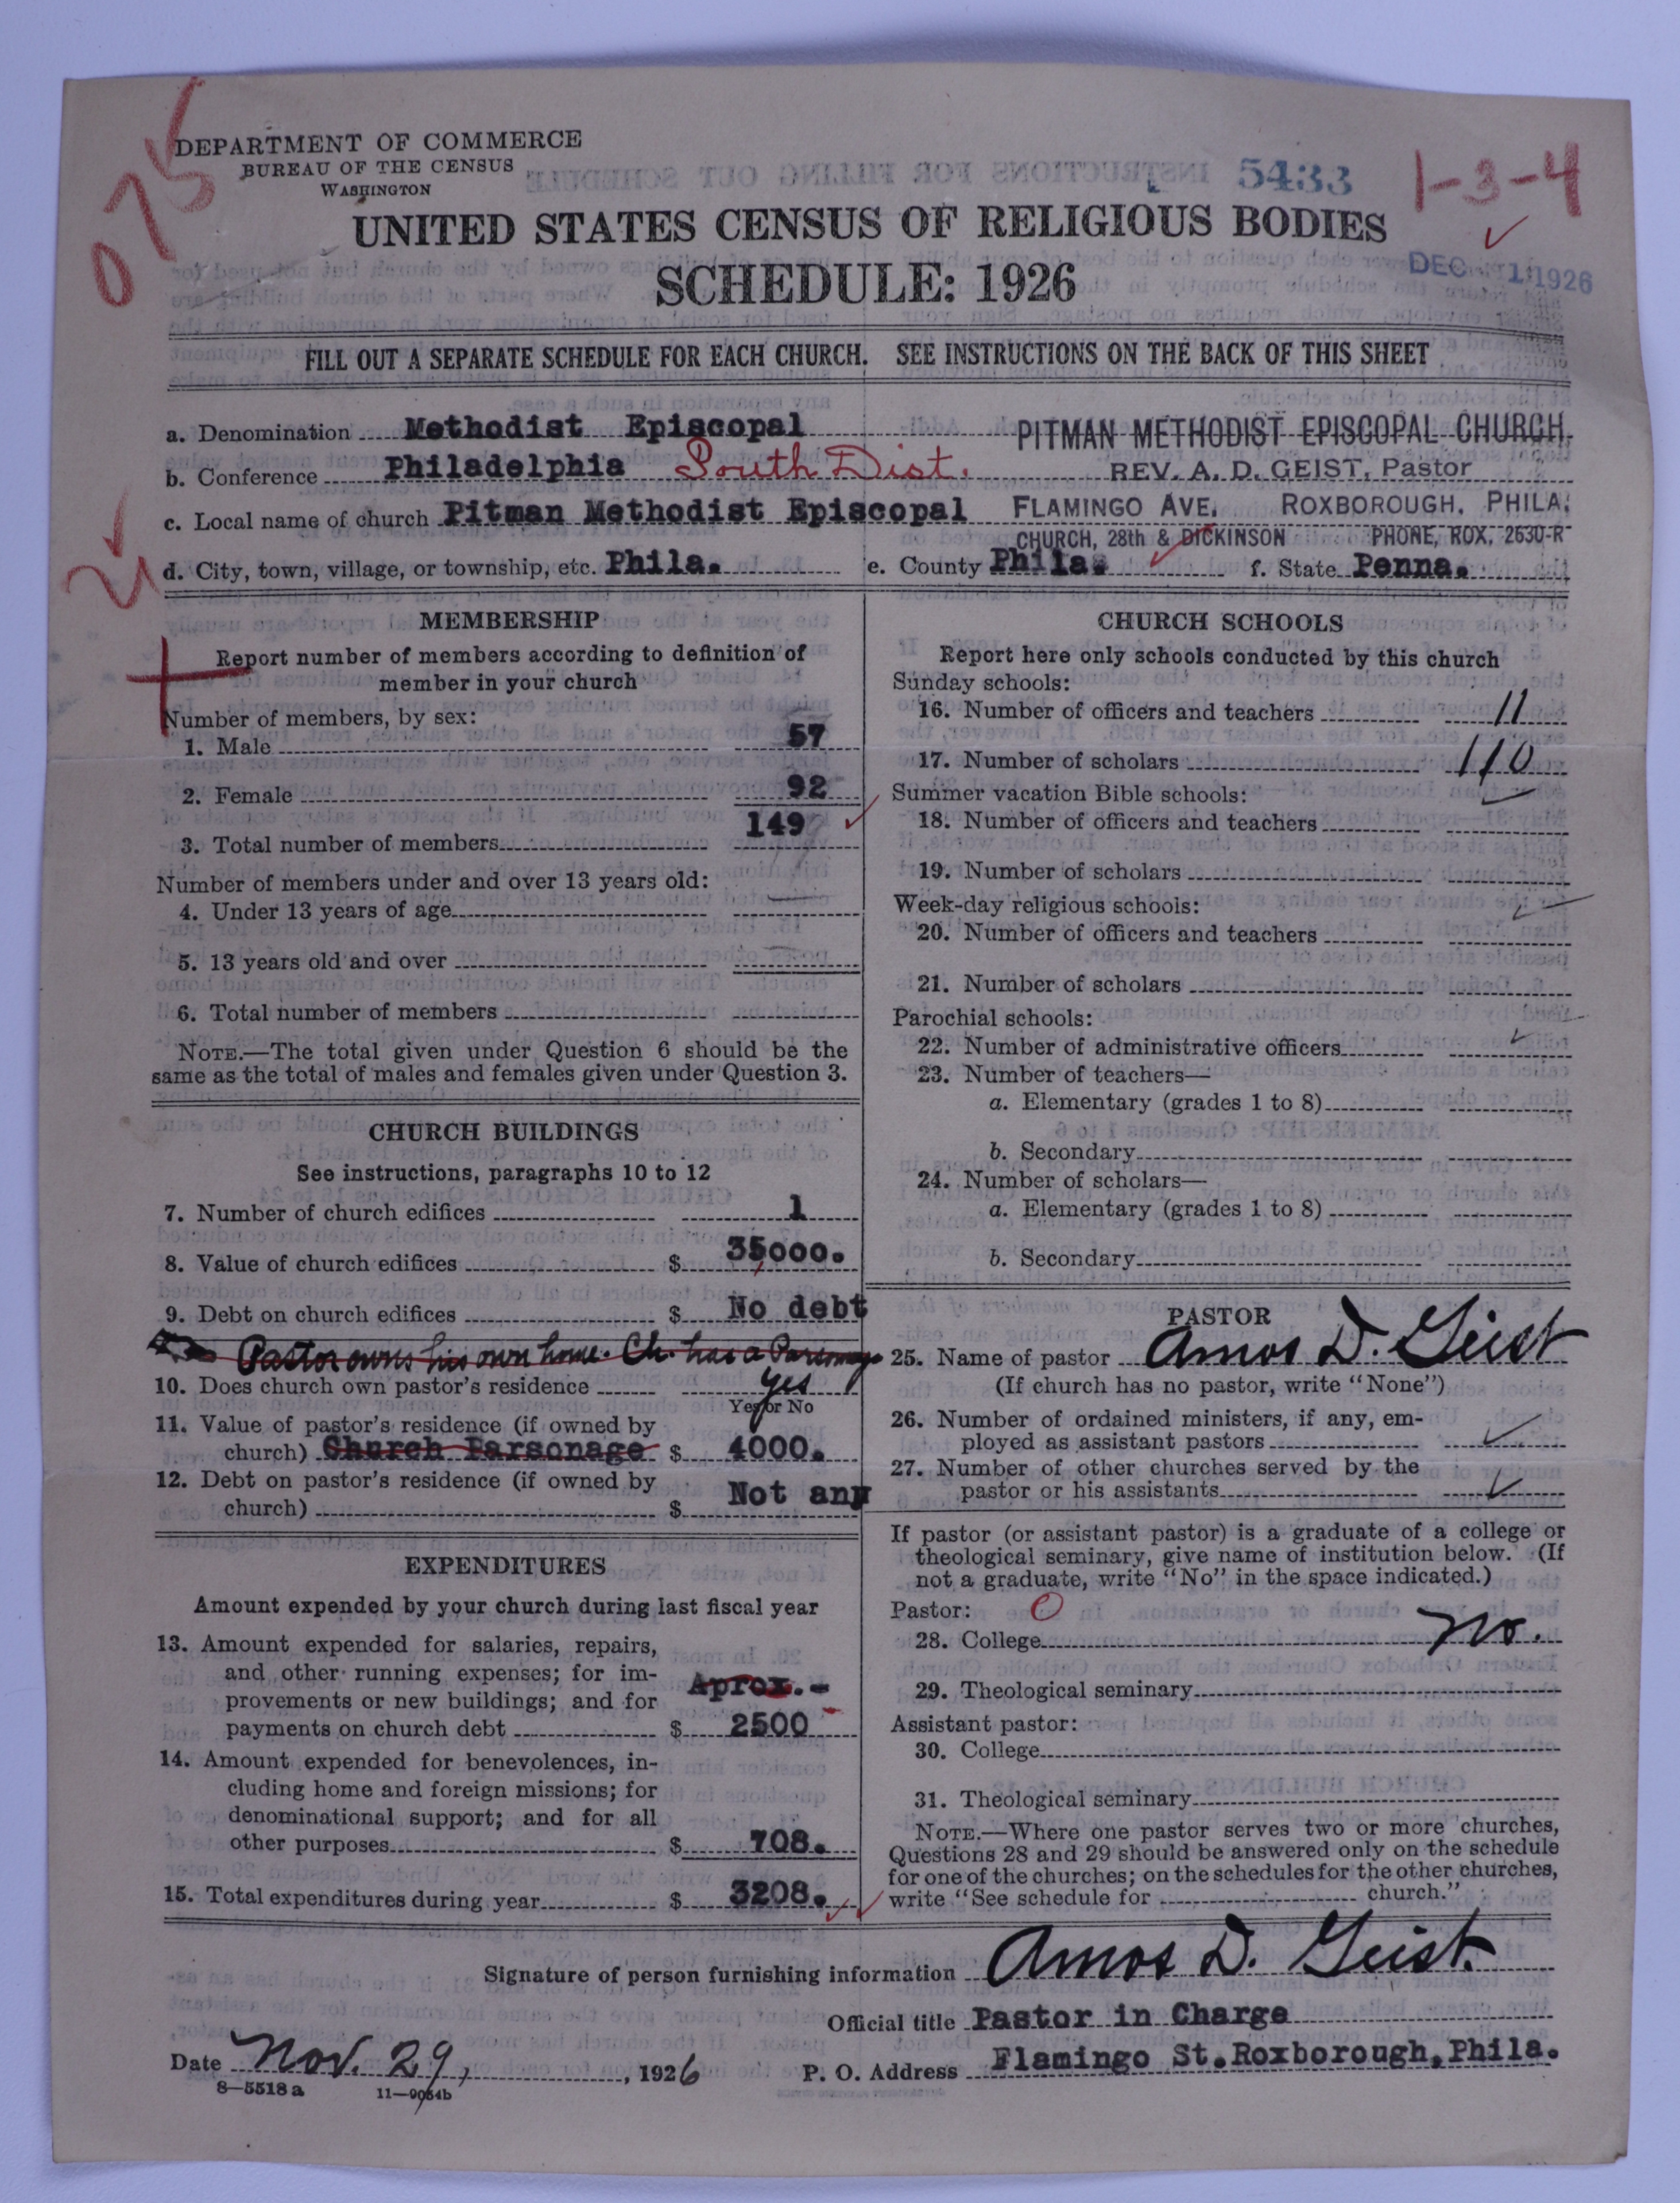 075
DEPARTMENT OF COMMERCE
BUREAU OF THE CENSUS
WASHINGTON
5433
1-3-4
UNITED STATES CENSUS OF RELIGIOUS BODIES
SCHEDULE: 1926
DEC 1 1926
FILL OUT A SEPARATE SCHEDULE FOR EACH CHURCH. SEE INSTRUCTIONS ON THE BACK OF THIS SHEET
a. Denomination Methodist Episcopal PITMAN METHODIST EPISCOPAL CHURCH.
b. Conference Philadelphia South Dist. REV. A. D. GEIST, Pastor
c. Local name of church Pitman Methodist Episcopal FLAMINGO AVE. ROXBOROUGH, PHILA.
CHURCH, 28th & DICKINSON PHONE, ROX. 2630-R
d. City, town, village, or township, etc. Phila. e. County Phila. f. State Penna.
MEMBERSHIP
Report number of members according to definition of
member in your church
Number of members, by sex:
1. Male 57
2. Female 92
3. Total number of members 149
Number of members under and over 13 years old:
4. Under 13 years of age
5. 13 years old and over
6. Total number of members
NOTE.—The total given under Question 6 should be the
same as the total of males and females given under Question 3.
CHURCH BUILDINGS
See instructions, paragraphs 10 to 12
7. Number of church edifices 1
8. Value of church edifices $ 35000.
9. Debt on church edifices $ No debt
Pastor owns his own home. Ch. has a Parsonage
10. Does church own pastor's residence yes
Yes or No
11. Value of pastor's residence (if owned by
church) Church Parsonage $ 4000.
12. Debt on pastor's residence (if owned by
church) $ Not any
EXPENDITURES
Amount expended by your church during last fiscal year
13. Amount expended for salaries, repairs,
and other running expenses; for im-
provements or new buildings; and for Aprox.-
payments on church debt $ 2500
14. Amount expended for benevolences, in-
cluding home and foreign missions; for
denominational support; and for all
other purposes $ 708.
15. Total expenditures during year $ 3208.
CHURCH SCHOOLS
Report here only schools conducted by this church
Sunday schools:
16. Number of officers and teachers 11
17. Number of scholars 110
Summer vacation Bible schools:
18. Number of officers and teachers
19. Number of scholars
Week-day religious schools:
20. Number of officers and teachers
21. Number of scholars
Parochial schools:
22. Number of administrative officers
23. Number of teachers—
a. Elementary (grades 1 to 8)
b. Secondary
24. Number of scholars—
a. Elementary (grades 1 to 8)
b. Secondary
PASTOR
25. Name of pastor Amos D. Geist
(If church has no pastor, write "None")
26. Number of ordained ministers, if any, em-
ployed as assistant pastors
27. Number of other churches served by the
pastor or his assistants
If pastor (or assistant pastor) is a graduate of a college or
theological seminary, give name of institution below. (If
not a graduate, write "No" in the space indicated.)
Pastor: 0
28. College No.
29. Theological seminary
Assistant pastor:
30. College
31. Theological seminary
NOTE.—Where one pastor serves two or more churches,
Questions 28 and 29 should be answered only on the schedule
for one of the churches; on the schedules for the other churches,
write "See schedule for church."
Signature of person furnishing information Amos D. Geist.
Official title Pastor in Charge
Date Nov. 29, 1926 P. O. Address Flamingo St. Roxborough, Phila.
8—5518a 11—9054b